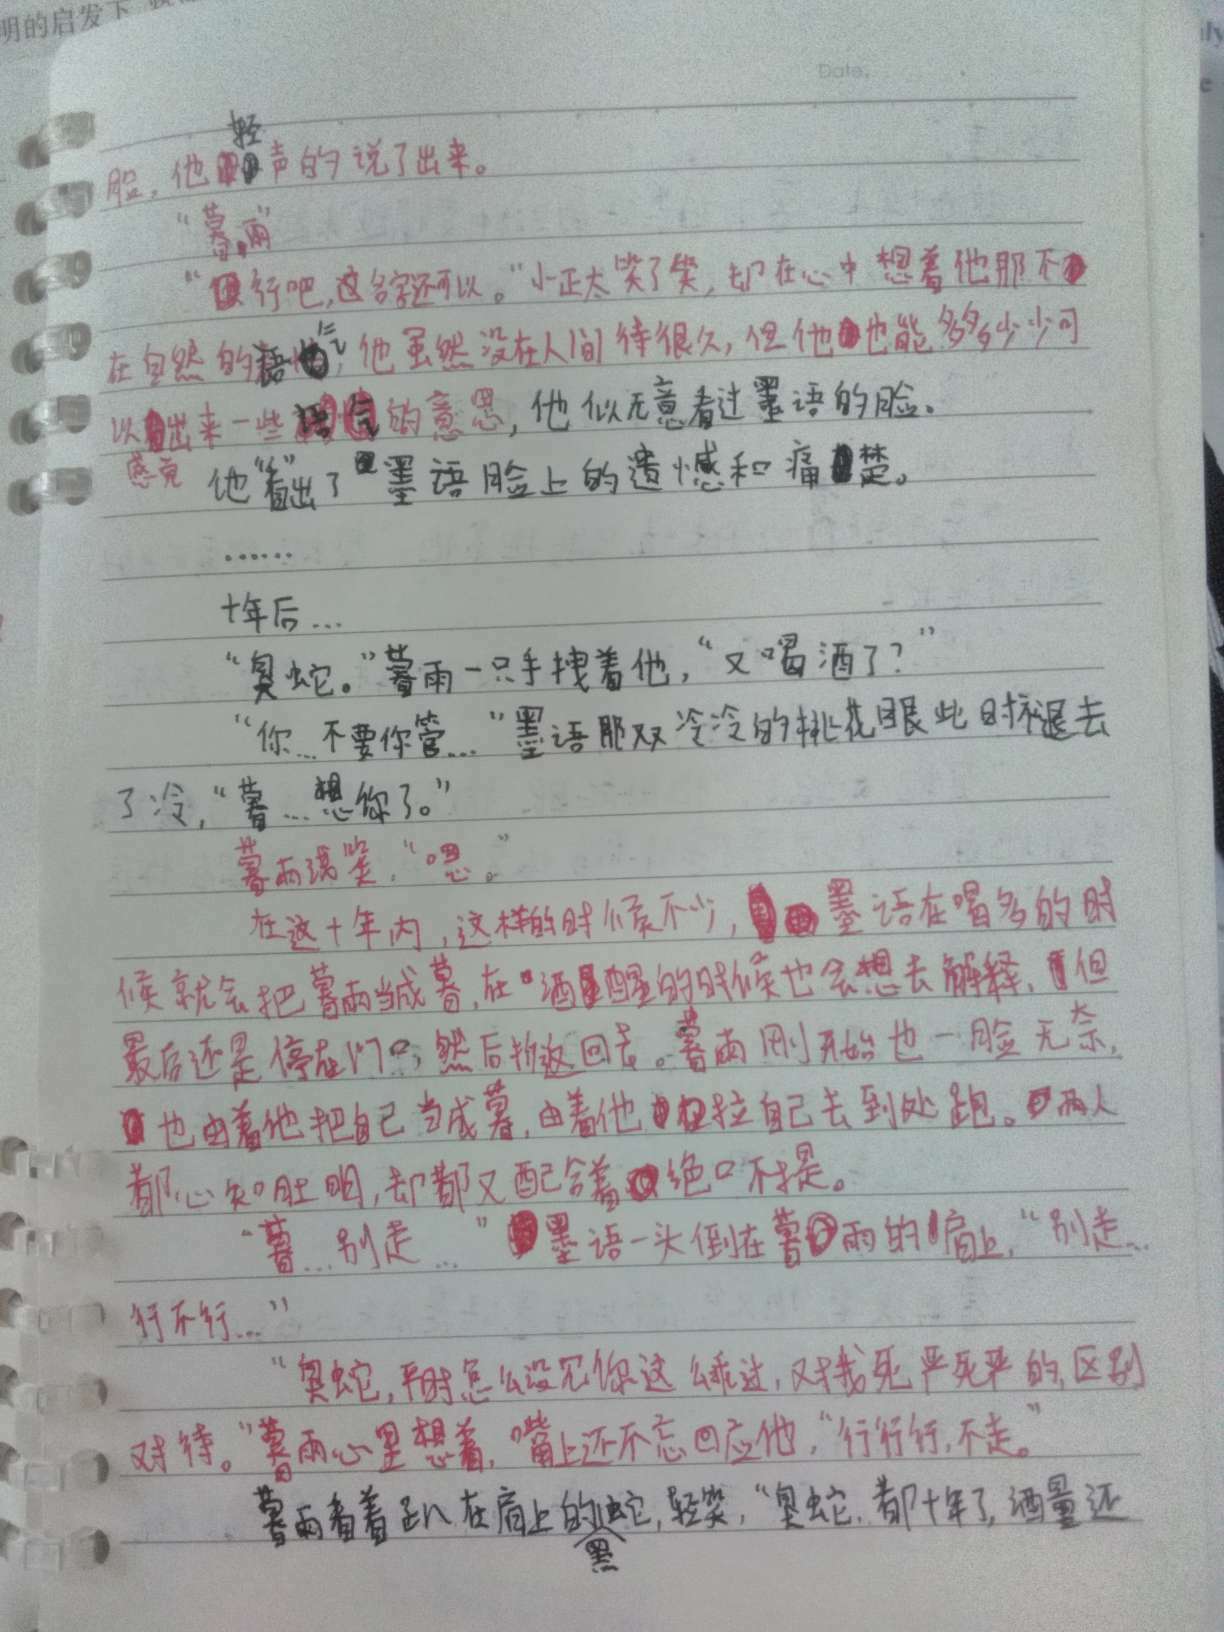 明的启发下
Date.
脸，他轻声的说了出来。
“暮雨”
“行吧，这名字还可以。”小正太笑了笑，却在心中想着他那不
在自然的语气，他虽然没在人间待很久，但他也能多多少少可
以感觉出来一些的意思，他似无意看过墨语的脸。
他“看”出了墨语脸上的遗憾和痛楚。
……
十年后…
“臭蛇。”暮雨一只手拽着他，“又喝酒了？”
“你…不要你管…”墨语那双冷冷的桃花眼此时褪去
了冷，“暮…想你了。”
暮雨笑，“嗯。”
在这十年内，这样的时候不少，墨语在喝多的时
候就会把暮雨当成暮，在酒醒的时候也会想去解释，但
最后还是停在门口，然后折返回去。暮雨刚开始也一脸无奈，
也由着他把自己当成暮，由着他拉自己去到处跑。两人
都心知肚明，却都又配合着绝口不提。
“暮…别走…”墨语一头倒在暮雨的肩上，“别走…
行不行…”
“臭蛇，平时怎么没见你这么乖过，对我死严死严的，区别
对待。”暮雨心里想着，嘴上还不忘回应他，“行行行，不走。”
暮雨看着趴在肩上的黑蛇，轻笑，“臭蛇，都十年了，酒量还